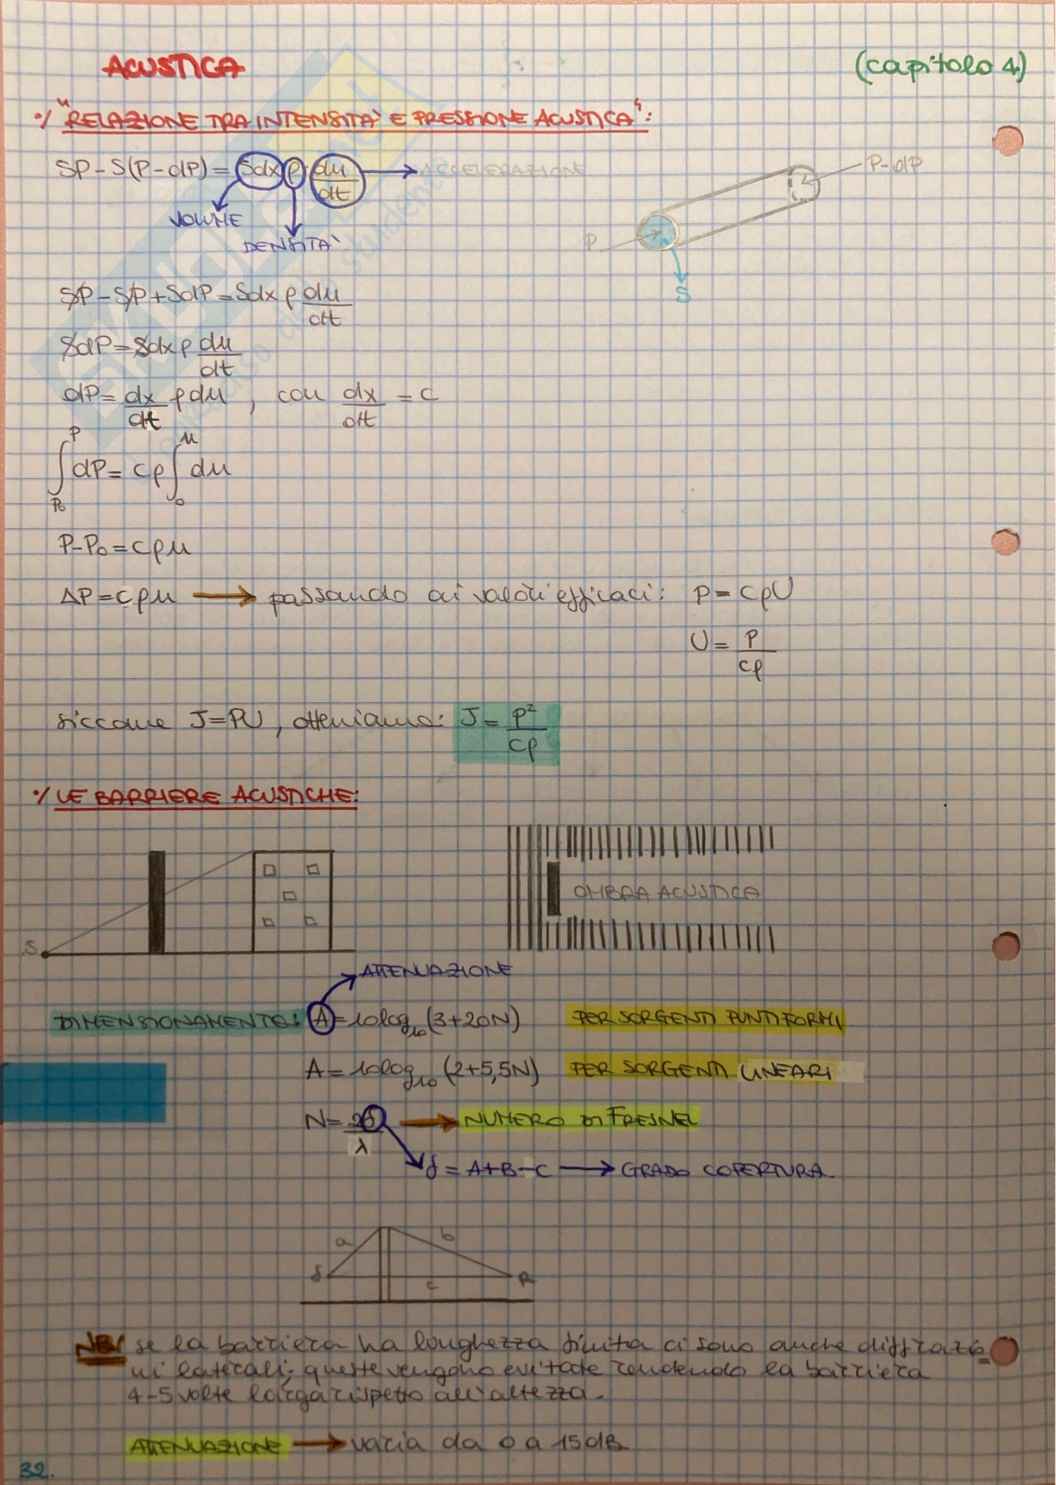 ACUSTICA
(capitolo 4)
•/ "RELAZIONE TRA INTENSITA' E PRESSIONE ACUSTICA":
SP-S(P-dP)=Sdx ρ du/dt → ACCELERAZIONE
VOLUME
DENSITA'
P-dP
P
S
SP-SP+SdP=Sdx ρ du/dt
SdP=Sdx ρ du/dt
dP=dx/dt ρdu, con dx/dt = c
∫P₀^P dP= cρ ∫₀^u du
P-P₀=cρu
ΔP=cρu → passando ai valori efficaci: P=cρU
U=P/cρ
siccome J=PU, otteniamo: J=P²/cρ
•/ LE BARRIERE ACUSTICHE:
S
OMBRA ACUSTICA
ATTENUAZIONE
DIMENSIONAMENTO: A=10log₁₀(3+20N) PER SORGENTI PUNTIFORMI
A=10log₁₀(2+5,5N) PER SORGENTI LINEARI
N=2δ/λ → NUMERO DI FRESNEL
δ=A+B-C → GRADO COPERTURA
a b
S c R
NB/ se la barriera ha lunghezza finita ci sono anche diffrazio-
ni laterali; queste vengono evitate rendendo la barriera
4-5 volte larga rispetto all'altezza.
ATTENUAZIONE → varia da 0 a 15dB
32.